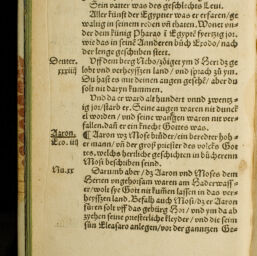 Sein vatter was des geschlechts Levi.
Aller künst der Egyptier was er erfaren / ge
waltig in seinem reden vñ thaten. Wonet vn=
der dem künig Pharao ĩ Egyptẽ fyertzig jor.
wie das in seinẽ Annderen bůch Exodo / nach
der lenge geschriben stett.
Deuter.
xxxiiij
Vff dem berg Nebo / zöiget ym ð Herr dz ge
lobt vnd verheyssen land / vnd sprach zů ym.
Du hast es mit deinen augen gesehẽ / aber du
solt nit daryn kummen.
Vnd da er ward alt hundert vnnd zwentz
ig jor / starb er. Seine augen waren nit dunck
el worden / vnd seine wangen waren nit ver=
fallen / daß er ein frecht Gottes was.
Aaron.
Exo. iiij
¶ Aaron wz Mose brůder / ein beredter hoh
er mann / vñ der groß priester des volcks Got
tes, welchs herrliche geschichten in bücherenn
Mosi beschriben seind.
Nu. xx
Darumb aber / dz Aaron vnd Moses dem
Herren vngehorsam waren am Haderwass
er / wolt sye Gott nit kum̃en lassen in das ver
heyssen land. Befalh auch Mosi / dz er Aaron
füren solt vff das gebürg Hor / vnd ym da ab
zyehen seine priesterliche kleyder / vnd die seim
sün Eleasaro anlegen / vor der ganntzen Ge=